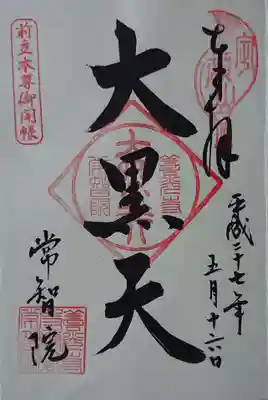 奉拝
平成二十七年
五月十六日
大黒天
前立本尊御開帳
常智院